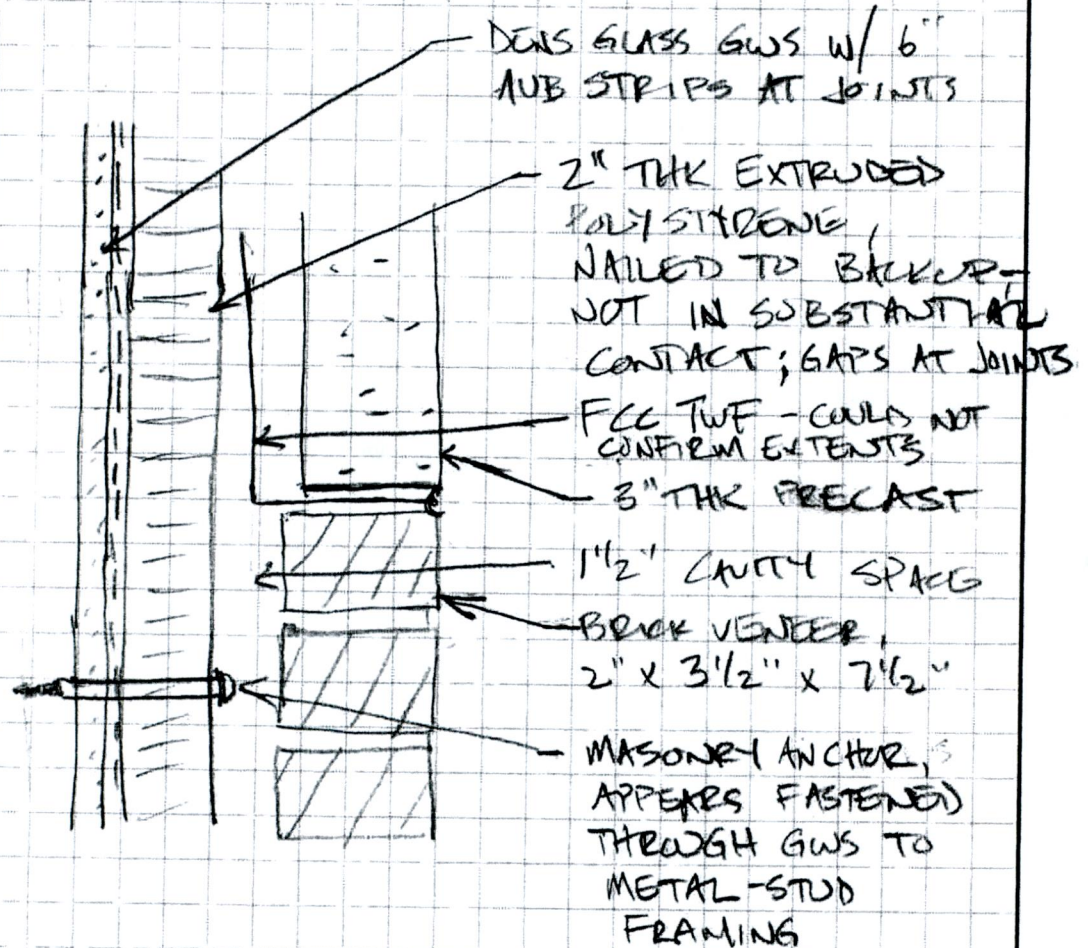 DENS GLASS GWS W/ 6"
AUB STRIPS AT JOINTS
2" THK EXTRUDED
POLYSTYRENE,
NAILED TO BACKUP-
NOT IN SUBSTANTIAL
CONTACT; GAPS AT JOINTS
FCC TWF - COULD NOT
CONFIRM EXTENTS
3" THK PRECAST
1 1/2" CAVITY SPACE
BRICK VENEER,
2" x 3 1/2" x 7 1/2"
MASONRY ANCHOR,
APPEARS FASTENED
THROUGH GWS TO
METAL-STUD
FRAMING